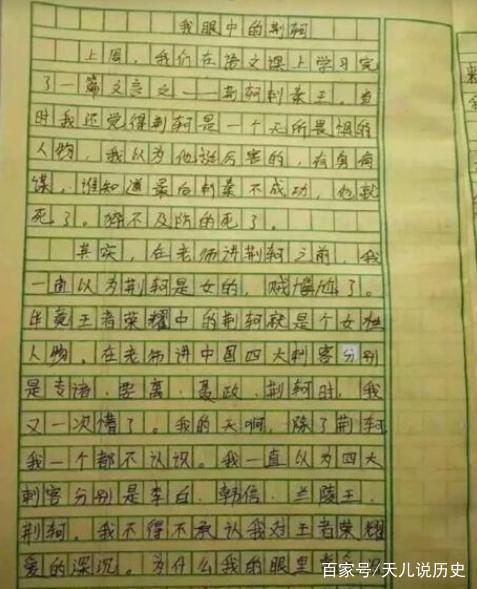 我眼中的荆轲
上周，我们在语文课上学习完
了一篇文言文——荆轲刺秦王。当
时我还觉得荆轲是一个无所畏惧的
人物，我以为他挺厉害的，有勇有
谋，谁知道最后刺秦不成功，他就
死了。猝不及防的死了。
其实，在老师讲荆轲之前，我
一直以为荆轲是女的，贼尴尬了。
毕竟王者荣耀中的荆轲就是个女性
人物。在老师讲中国四大刺客分别
是专诸、要离、聂政、荆轲时，我
又一次懵了。我的天啊，除了荆轲
我一个都不认识。我一直以为四大
刺客分别是李白、韩信、兰陵王、
荆轲。我不得不承认我对王者荣耀
爱的深沉。为什么我的眼里常
百家号/天儿说历史